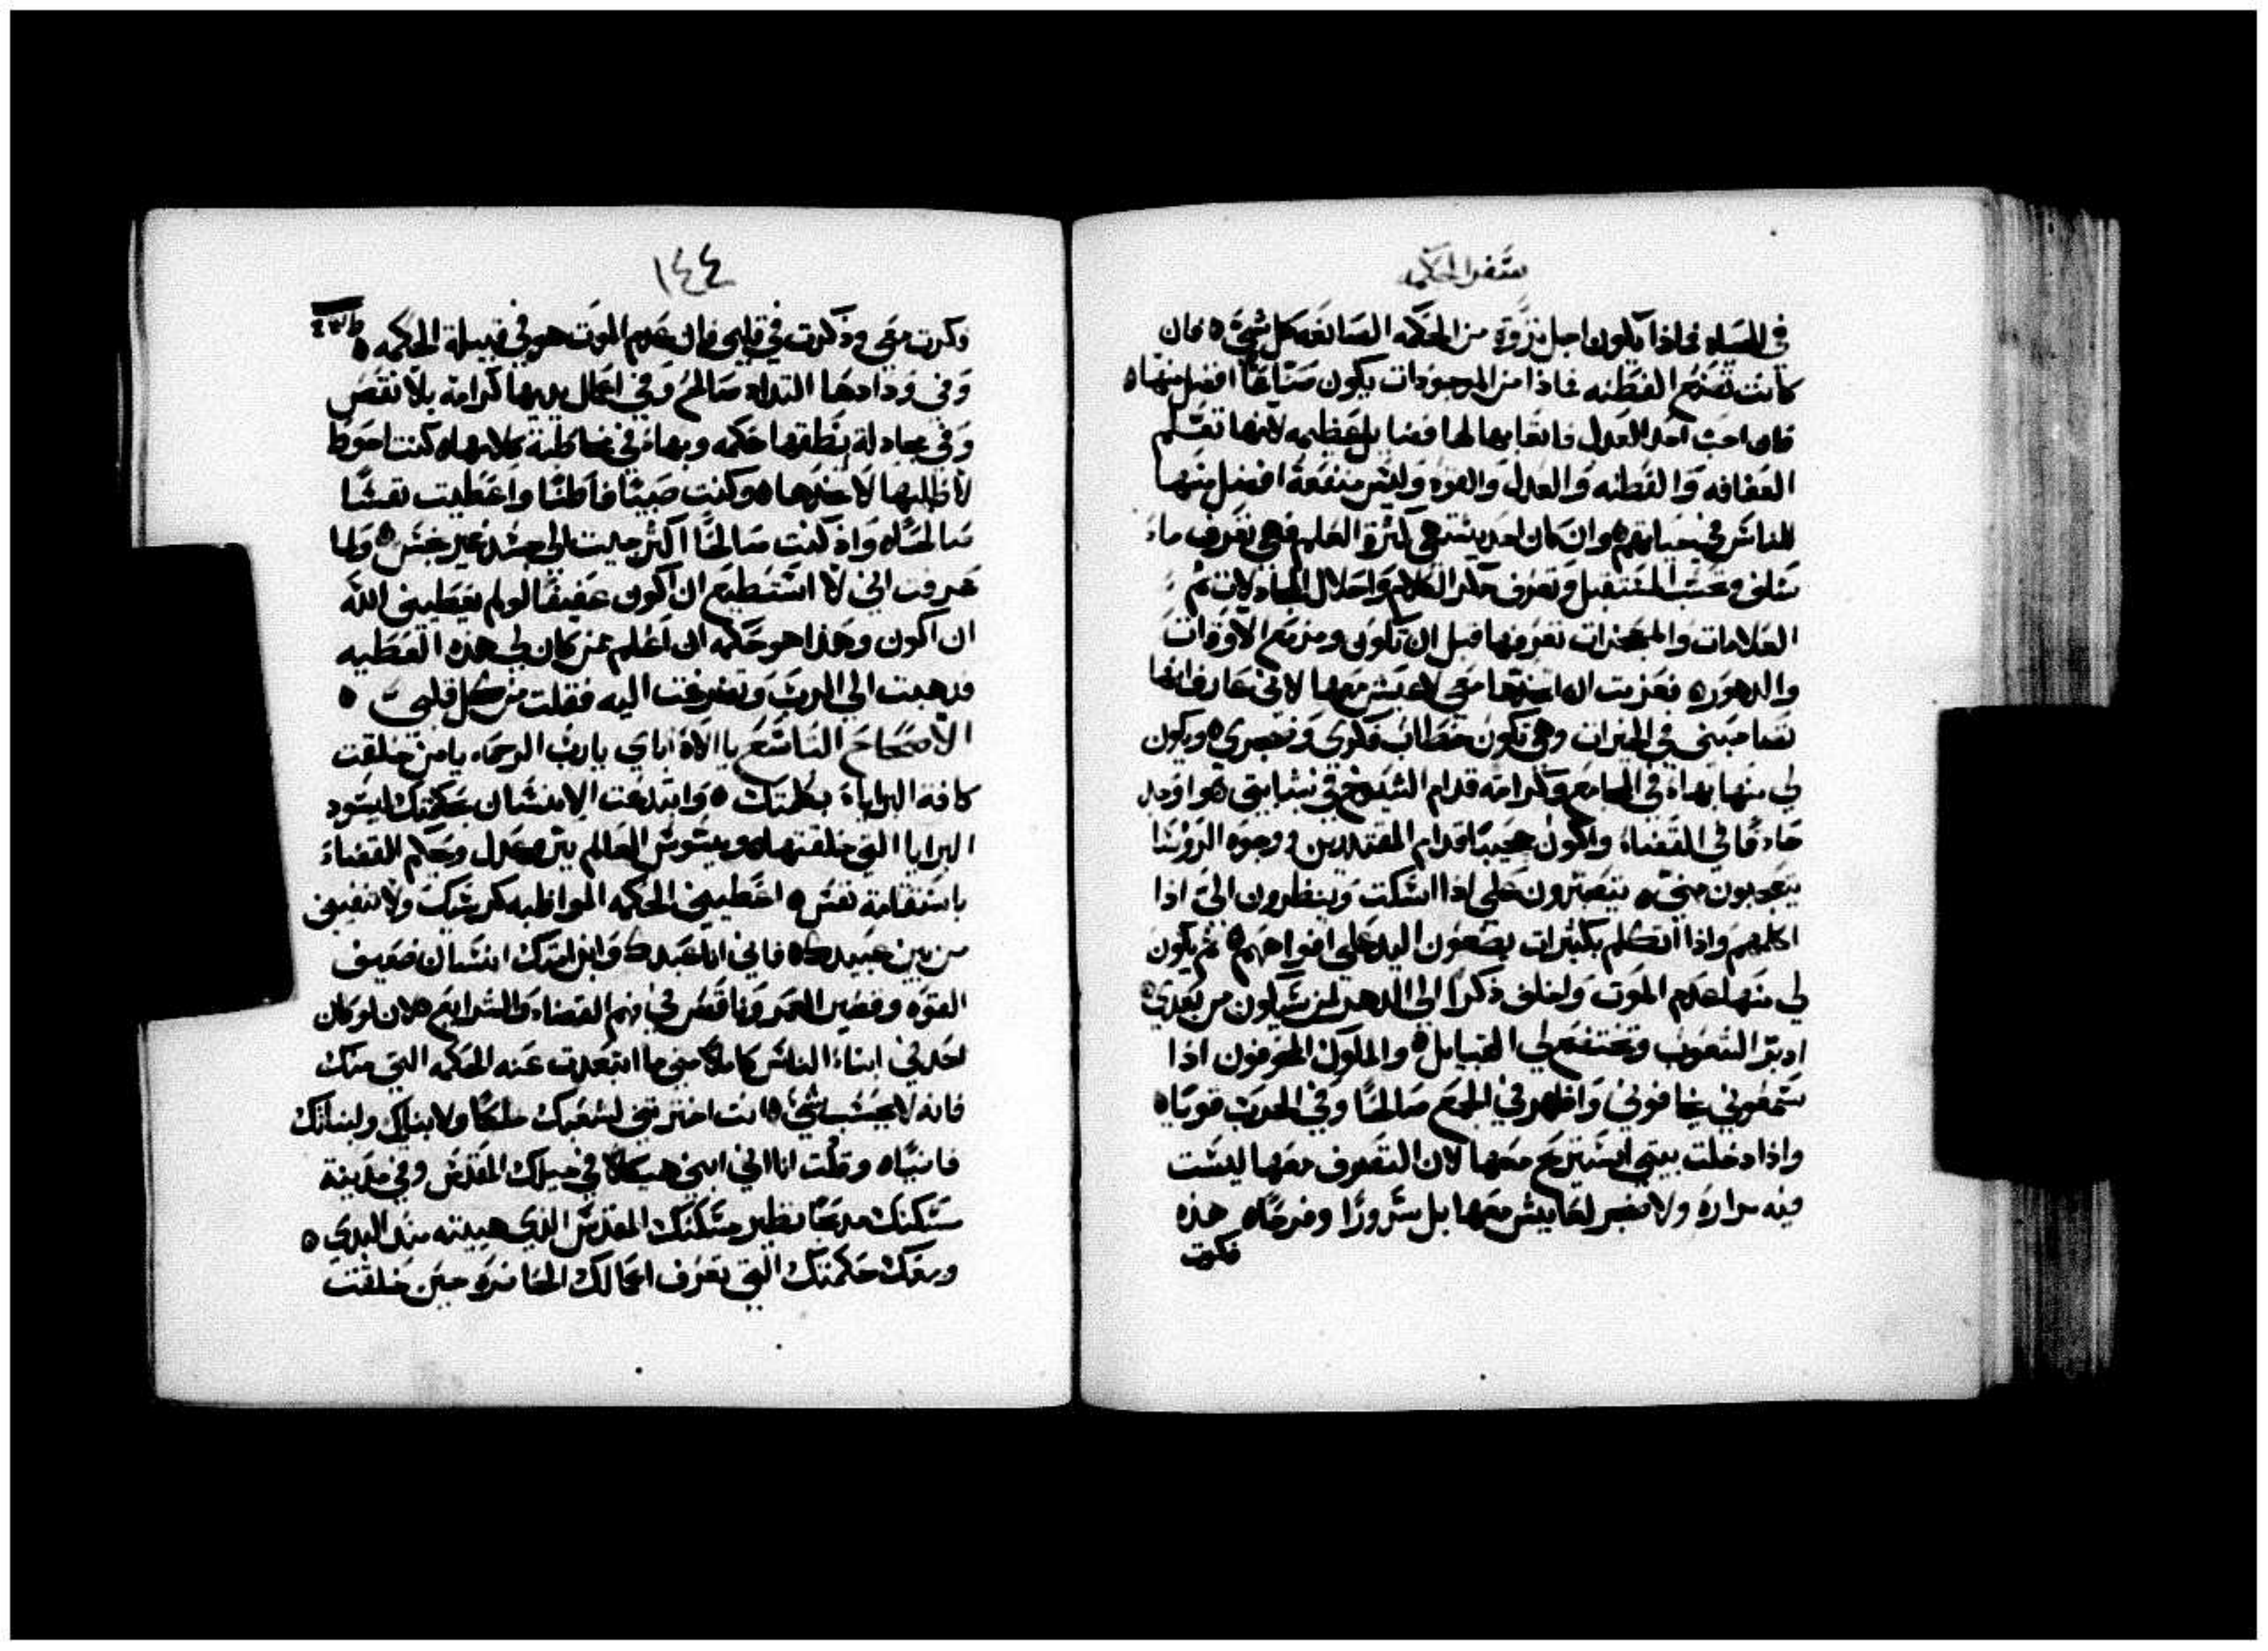 سفر الحكمه
في الحياه فماذا يكون اجل ثروة من الحكمه الصانعه كل شيء ه فان
كانت تصنع الفطنه فماذا من الموجودات يكون صنايعًا افضل منها ه
فان احب احد العدل فاتعابها لها فضايل عظيمه لانها تعلم
العفافه والفطنه والعدل والقوه وليس منفعة افضل منها
للناس في حياتهم ه وان كان احد يشتهي كثرة العلم فهي تعرف ما
سلف وتحسب المستقبل وتعرف حكر الكلام واحلال المجادلات ثم
العلامات والمعجزات تعرفها قبل ان تكون ومزمع الاوقات
والدهور ه فعزمت ان اتخذها معي لاعيش معها لاني عارفا انها
تصاحبني في الخيرات وهي تكون خطاب فكري وضجري ه ويكون
لي منها بهاء في المجامع وكرامه قدام الشيوخ في شبابتي هو اوجد
حادقا في القضاء واكون عجيبًا قدام المقتدرين ووجوه الروسا
يتعجبون مني ه يتصبرون علي اذا اسكت وينظرون الي اذا
اكلمهم واذا اتكلم بكثيرات يضعون اليد علي افواههم ه ثم يكون
لي منها عدم الموت واخلف ذكرا الي الدهر لمن سيكون من بعدي ه
ادبر الشعوب وتختضع لي القبايل ه والملوك المخوفون اذا
سمعوني يخافوني واظهر في الجمع صالحًا وفي الحرب قويًا ه
واذا دخلت بيتي استريح معها لان التصرف معها ليست
فيه مرارة ولا ضجر لمعايش معها بل سرورًا وفرحًا ه هذه
فكرت
١٤٤
فكرت معي وذكرت في قلبي فان عدم الموت هو في قبيلة الحكمه ه
وفي ودادها التداد صالح وفي اعمال يديها كرامة بلا نقص
وفي مجادلة نطقها حكمه وبهاء في مخاطبة كلامها ه كنت احوط
لاطلبها لاخذها ه وكنت صبيًا فاطنًا واعطيت نفسًا
صالحه ه واذ كنت صالحًا اكثر جيت الي جسد غير نجس ه ولما
عرفت اني لا استطيع ان اكون عفيفًا لو لم يعطيني الله
ان اكون وهذا هو حكمه ان اعلم ممن كان لي هذه العطيه
فدهبت الي الرب وتضرعت اليه فقلت من كل قلبي ه
الاصحاح التاسع يا الاه اباي يارب الرحمه يا من خلقت
كافة البرايا بكلمتك ه وابتدعت الانسان بحكمتك ليسود
البرايا التي خلقتها ه ويسوس العالم ببر وعدل وحكم القضاء
باستقامة نفس ه اعطيني الحكمه المواظبه كرسيك ولا تنفيني
من بين عبيدك ه فاني انا عبدك وابن امتك انسان ضعيف
القوه وقصير العمر وناقص في فهم القضاء والشرايع ه لان لو كان
احد في ابناء الناس كاملا متي ما ابتعدت عنه الحكمه التي منك
فانه لا يحسب شيء ه انت اخترتني لشعبك ملكًا ولابنايك ولبناتك
قاضيًا ه وقلت انا اني ابني هيكلا في جبلك المقدس وفي مدينة
سكنك مدبحًا نظير مسكنك المقدس الذي هييته منذ البدي ه
ومعك حكمتك التي تعرف اعمالك الحاضره حين خلقت